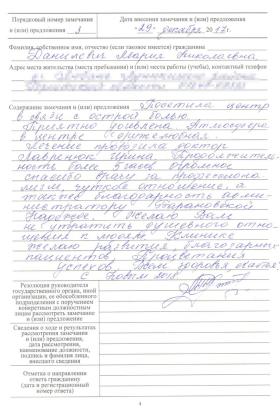 Порядковый номер замечания
и (или) предложения 3
Дата внесения замечания и (или) предложения
"29" декабря 2017 г.
Фамилия, собственное имя, отчество (если таковое имеется) гражданина
Данилевич Мария Николаевна
Адрес места жительства (места пребывания) и (или) места работы (учебы), контактный телефон
Содержание замечания и (или) предложения Посетила центр
в связи с острой болью.
Приятно удивлена атмосфера
в центре
Лечение проводила доктор
Лавренюк Ирина.
ность более 5 часов. Огромное
спасибо врачу за профессиона
лизм, чуткое отношение, а
также благодарность админи
стратору Барановской
Надежде. Желаю Вам
не утратить душевного отно
шения к людям. Клинике
желаю развития, благодарных
пациентов, процветания
успехов, Вам здоровья счастья,
С Новым 2018
Резолюция руководителя
государственного органа, иной
организации, ее обособленного
подразделения с поручением
конкретным должностным
лицам рассмотреть замечание
и (или) предложение
Сведения о ходе и результатах
рассмотрения замечания
и (или) предложения,
дата рассмотрения,
наименование должности,
подпись и фамилия лица,
внесшего сведения
Отметка о направлении
ответа гражданину
(дата и регистрационный
номер ответа)
4